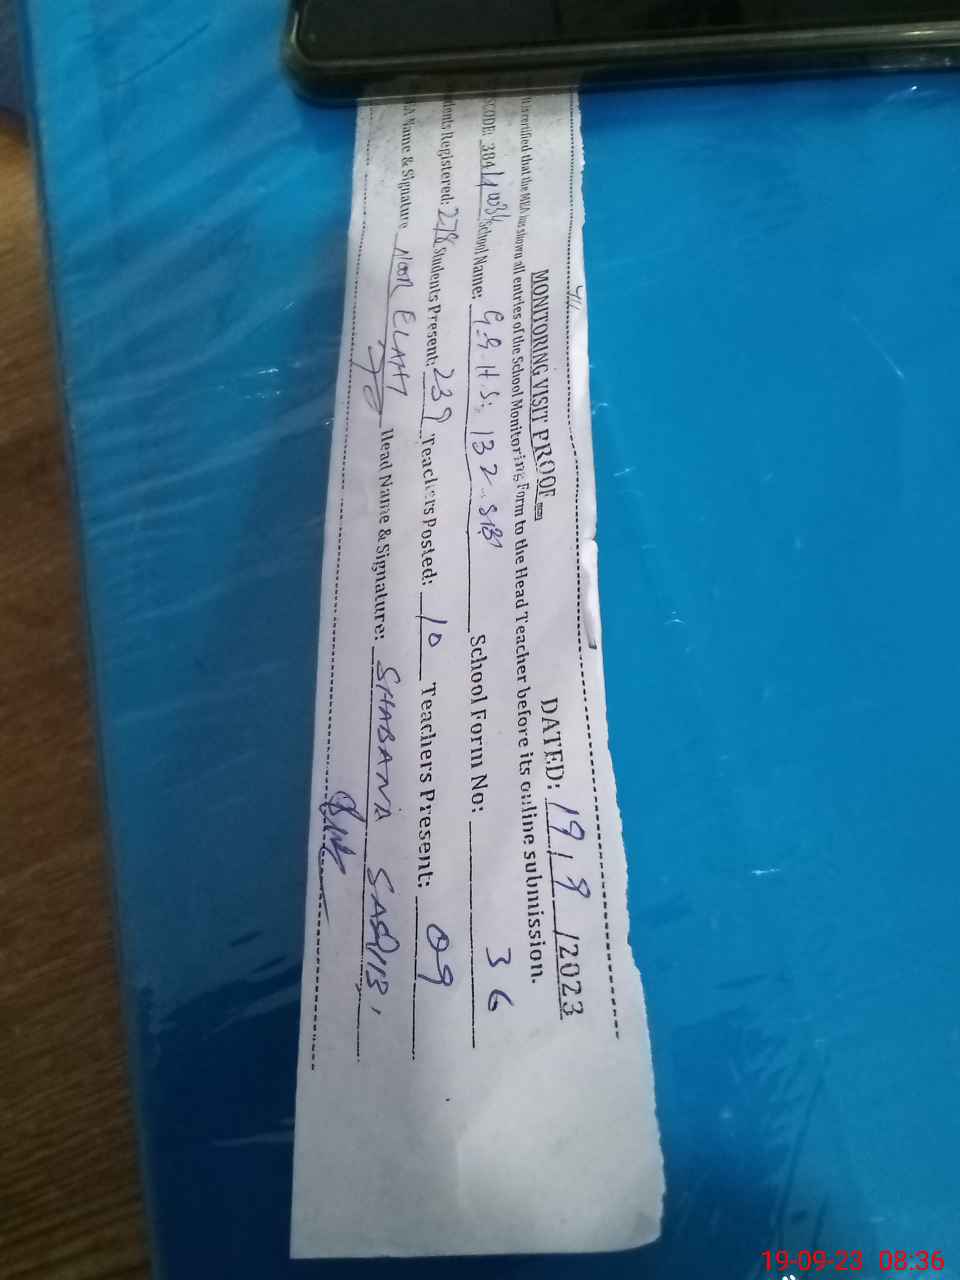 MONITORING VISIT PROOF DATED: 19/9/2023
It is certified that the MEA has shown all entries of the School Monitoring Form to the Head Teacher before its online submission.
SCODE: 384/1 School Name: G.G.H.S. 132 SB School Form No: 36
dents Registered: 278 Students Present: 239 Teachers Posted: 10 Teachers Present: 09
EA Name & Signature NOOR ELAHI Head Name & Signature: SHABANA
19-09-23 08:36